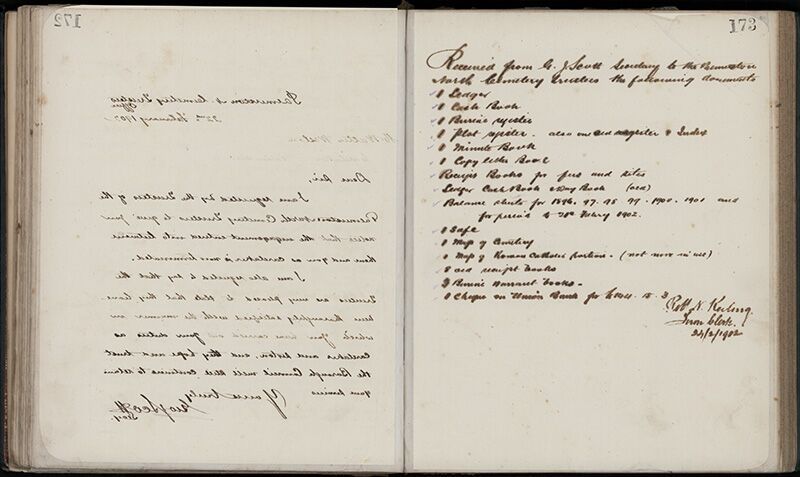 172
Palmerston N. Cemetery Trustees
Office
February 1902
Mr Walter
Dear Sir,
I am requested by the Trustees of the
Palmerston North Cemetery Trustees to give you
notice that the engagement entered into between
them and you as caretaker is now terminated.
I am also requested to say that the
Trustees are very pleased to state that they have
been thoroughly satisfied with the manner in
which you have carried out your duties as
Caretaker and sexton, and they hope and trust
the Borough Council will still continue to retain
your services
Yours truly
Geo J Scott
Secy.
173
Received from G. J. Scott Secretary to the Palmerston
North Cemetery Trustees the following documents
1 Ledger
1 Cash Book
1 Burial register
1 plot register. also one old register & Index
1 Minute Book
1 Copy letter Book
Receipt Books for fees and sites
Ledger Cash Book & Day Book (old)
Balance sheets for 1896. 97. 98 99. 1900. 1901 and
for period to 28th Febry 1902.
1 Safe
1 Map of Cemetery
1 Map of Roman Catholic portion. (not now in use)
8 old receipt books
3 Burial Warrant books.
1 Cheque on Union Bank for
Robt. N. Keeling.
Town Clerk.
24/2/1902